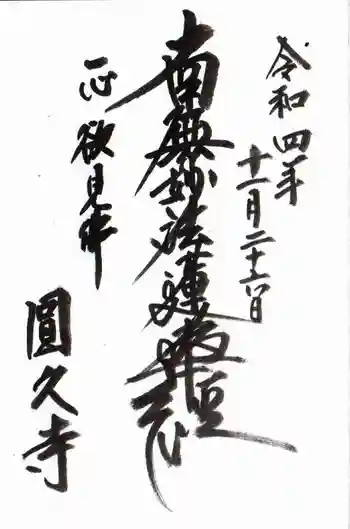 令和四年
十一月二十六日
南無妙法蓮華経
一心欲見佛
圓久寺